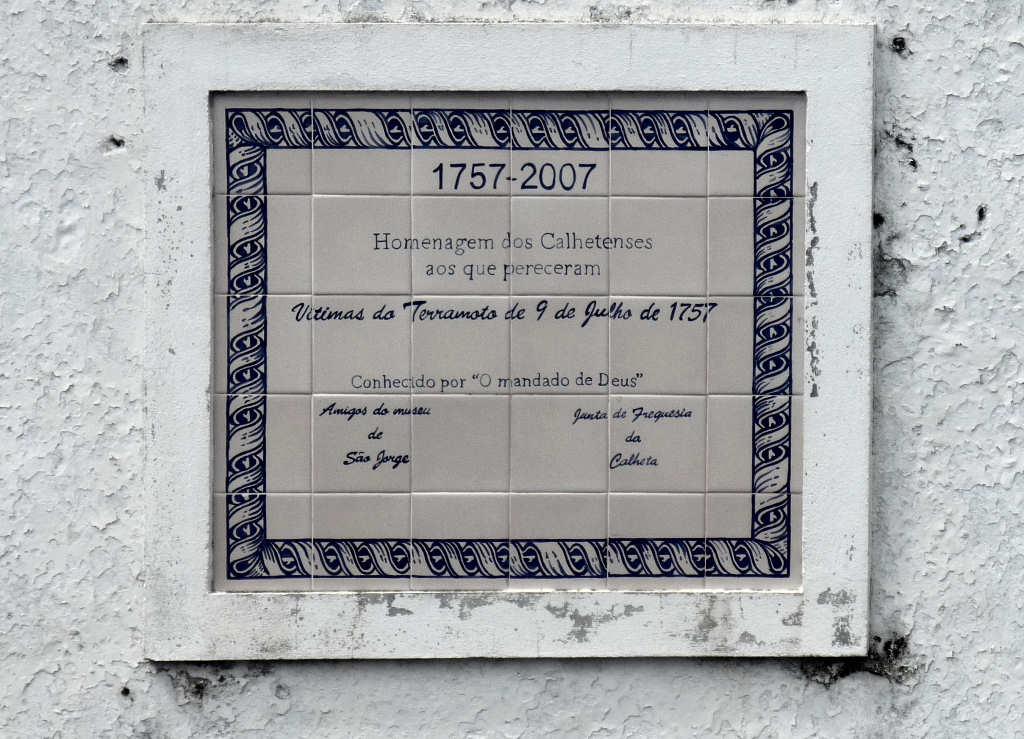 1757-2007
Homenagem dos Calhetenses
aos que pereceram
Vitimas do Terramoto de 9 de Julho de 1757
Conhecido por "O mandado de Deus"
Amigos do museu
de
São Jorge
Junta de Freguesia
da
Calheta